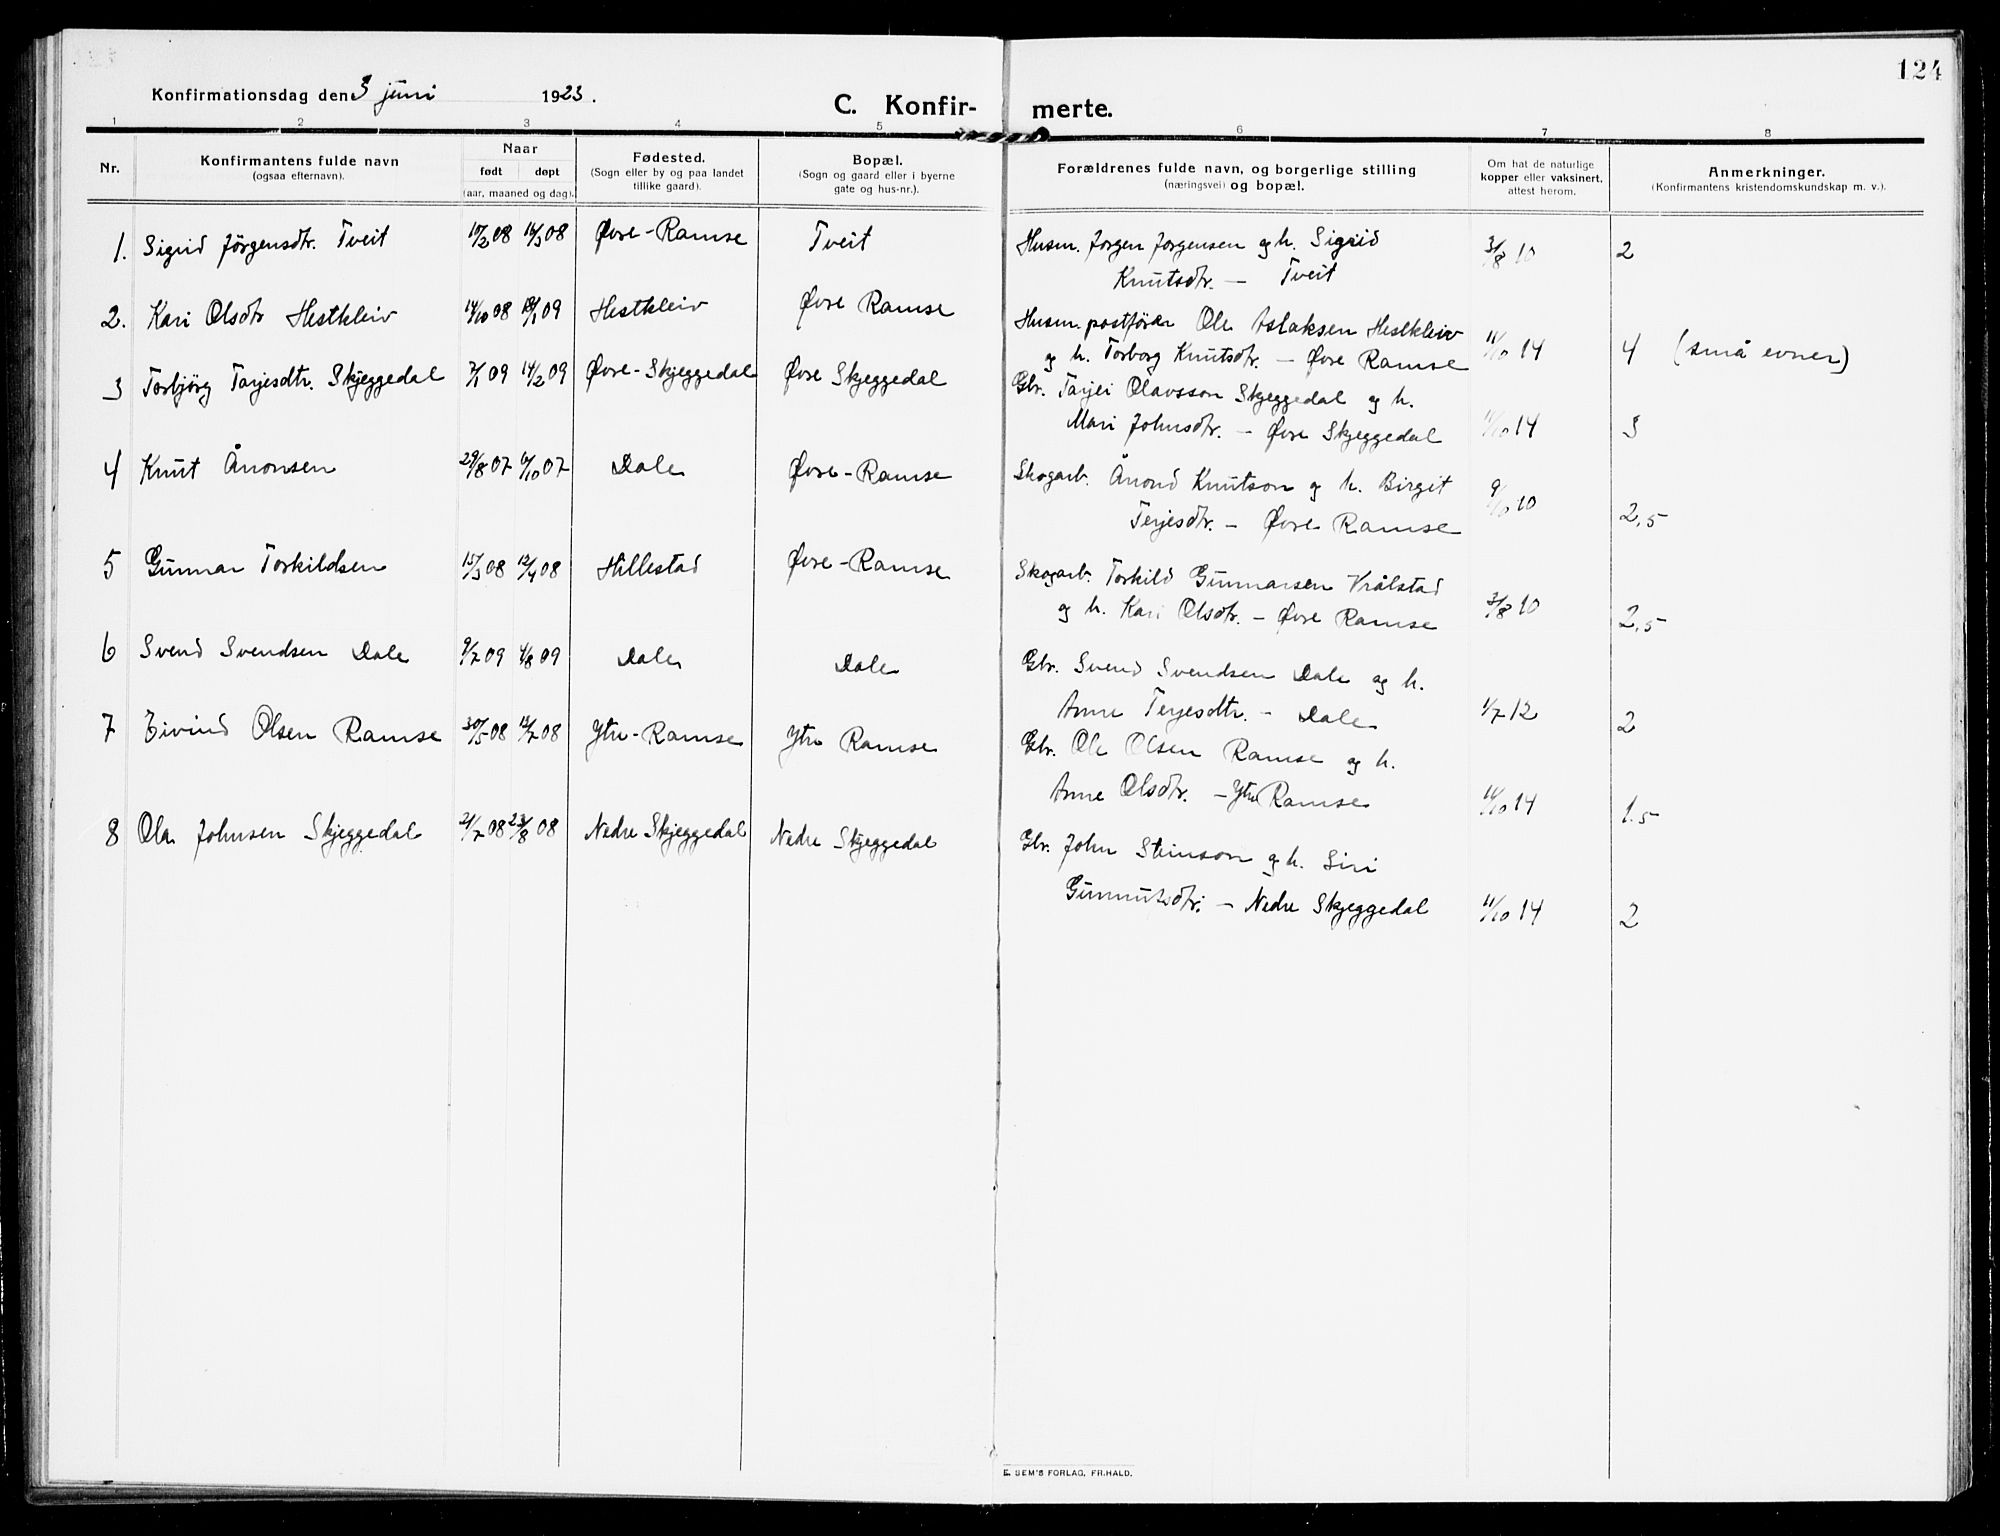 124
Konfirmationsdag den 3 juni 1923.
C. Konfirmerte.
1 2 3 4 5 6 7 8
Nr.
Konfirmantens fulde navn
(ogsaa efternavn).
Naar
født døpt
(aar, maaned og dag).
Fødested.
(Sogn eller by og paa landet
tillike gaard).
Bopæl.
(Sogn og gaard eller i byerne
gate og hus-nr.).
Forældrenes fulde navn, og borgerlige stilling
(næringsvei) og bopæl.
Om hat de naturlige
kopper eller vaksinert,
attest herom.
Anmerkninger.
(Konfirmantens kristendomskundskap m. v.).
1. Sigrid Jörgensdtr. Tveit 10/2 08 16/3 08 Øvre-Ramse Tveit Husm. Jorgen Jorgensen og h. Sigrid
Knutsdtr. — Tveit 3/8 10 2
2. Kari Olsdtr Hestkleiv 14/10 08 18/1 09 Hestkleiv Øvre Ramse Husm. postförer Ole Aslaksen Hestkleiv
og h. Torborg Knutsdtr. — Øvre Ramse 11/10 14 4 (små evner)
3 Torbjörg Tarjesdtr. Skjeggedal 7/1 09 14/2 09 Øvre-Skjeggedal Øvre Skjeggedal Gbr. Tarjei Olavsson Skjeggedal og h.
Mari Johnsdtr. — Øvre Skjeggedal 11/10 14 3
4 Knut Ånonsen 29/8 07 6/10 07 Dale Øvre-Ramse Skogarb. Ånond Knutson og h. Birgit
Terjesdtr. — Øvre Ramse 9/10 10 2,5
5 Gunnar Torkildsen 15/3 08 12/4 08 Hillestad Øvre-Ramse Skogarb. Torkild Gunnarsen Vrålstad
og h. Kari Olsdtr. — Øvre Ramse 3/8 10 2,5
6 Svend Svendsen Dale 9/7 09 4/8 09 Dale Dale Gbr. Svend Svendsen Dale og h.
Anne Terjesdtr. — Dale 1/7 12 2
7 Eivind Olsen Ramse 30/5 08 12/7 08 Ytre-Ramse Ytre Ramse Gbr. Ole Olsen Ramse og h.
Anne Olsdtr. — Ytre Ramse 11/10 14 1.5
8 Ola Johnsen Skjeggedal 21/7 08 23/8 08 Nedre Skjeggedal Nedre Skjeggedal Gbr. John Steinson og h. Siri
Gunnulsdtr. — Nedre Skjeggedal 11/10 14 2
E. SEM'S FORLAG, FR.HALD.